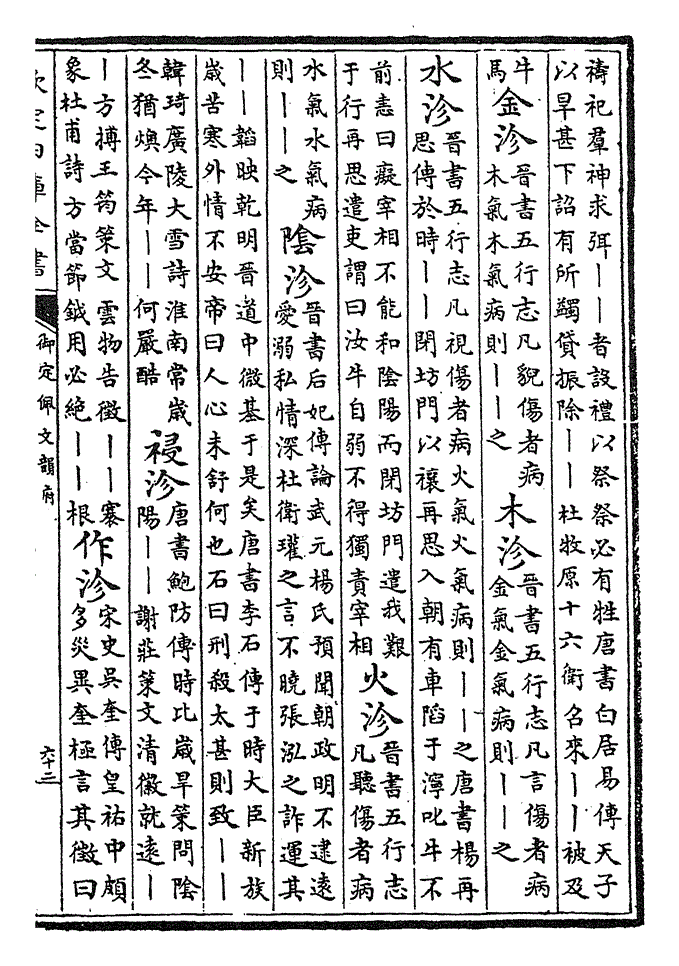 禱祀羣神求弭——者設禮以祭祭必有牲唐書白居易傳天子
以旱甚下詔有所蠲貸振除——杜牧原十六衛召來——被及
牛
馬
金沴
晉書五行志凡貌傷者病
木氣木氣病則——之
木沴
晉書五行志凡言傷者病
金氣金氣病則——之
水沴
晉書五行志凡視傷者病火氣火氣病則——之唐書楊再
思傳於時——閉坊門以禳再思入朝有車陷于濘叱牛不
前恚曰癡宰相不能和陰陽而閉坊門遣我艱
于行再思遣吏謂曰汝牛自弱不得獨責宰相
火沴
晉書五行志
凡聽傷者病
水氣水氣病
則——之
陰沴
晉書后妃傳論武元楊氏預聞朝政明不逮遠
愛溺私情深杜衛瓘之言不曉張泓之詐運其
——韜映乾明晉道中微基于是矣唐書李石傳于時大臣新族
歲苦寒外情不安帝曰人心未舒何也石曰刑殺太甚則致——
韓琦廣陵大雪詩淮南常歲
冬猶燠今年——何嚴酷
祲沴
唐書鮑防傳時比歲旱策問陰
陽——謝莊策文清徽就遠—
—方搏王筠策文 雲物告徵——褰
象杜甫詩方當節鉞用必絕——根
作沴
宋史吳奎傳皇祐中頗
多災異奎極言其徵曰
欽定四庫全書
御定佩文韻府
六十二